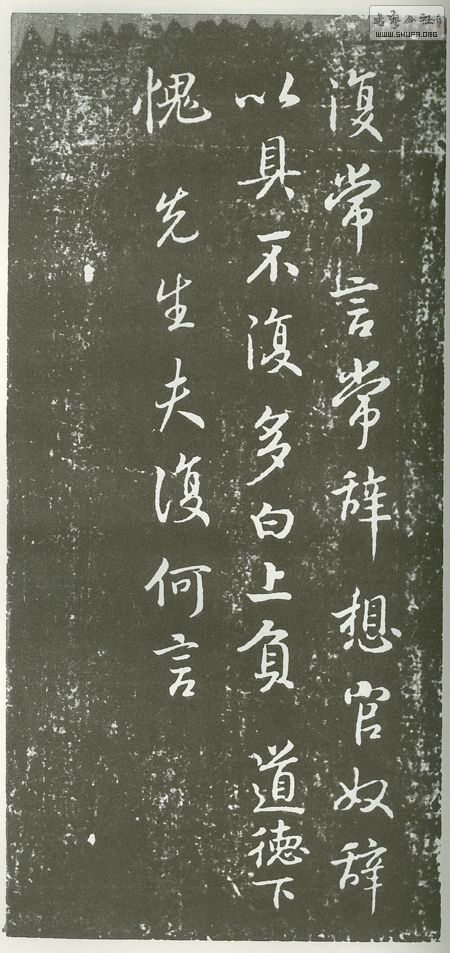 復常言常辞想官奴辞
以具不復多白上負 道德下
愧 先生夫復何言
書藝公社
WWW.SHUFA.ORG